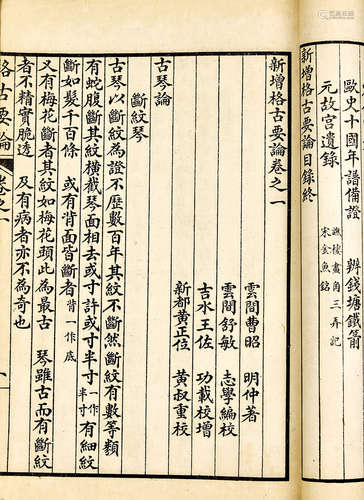 歐史十國年譜備證　辨錢塘鐵箭
元故宮遺錄　譙樓畫角三弄記
宋金魚銘
新增格古要論目錄終
新增格古要論卷之一
雲間曹昭　明仲著
雲間舒敏　志學編校
吉水王佐　功載校增
新都黃正位　黃叔重校
古琴論
斷紋琴
古琴以斷紋為證不歷數百年其紋不斷然斷紋有數等類
有蛇腹斷其紋橫截琴面相去或寸計或寸半寸一作半寸有細紋
斷如髮千百條　或有背面皆斷者背一作底
又有梅花斷者其紋如梅花頭此為最古　琴雖古而有斷紋
者不精實脆透　及有病者亦不為奇也
格古要論　卷之一　一